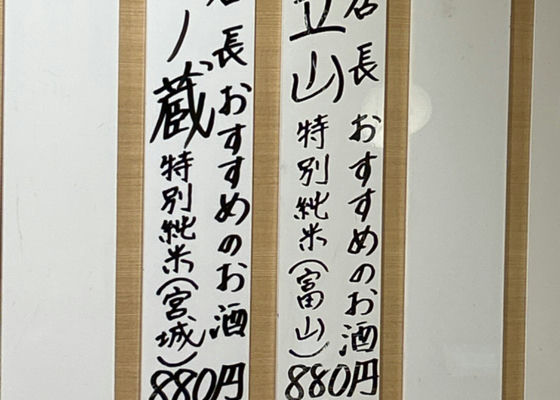 店長おすすめのお酒
立山
特別純米(富山)
880円
店長おすすめのお酒
ノ蔵
特別純米(宮城)
880円